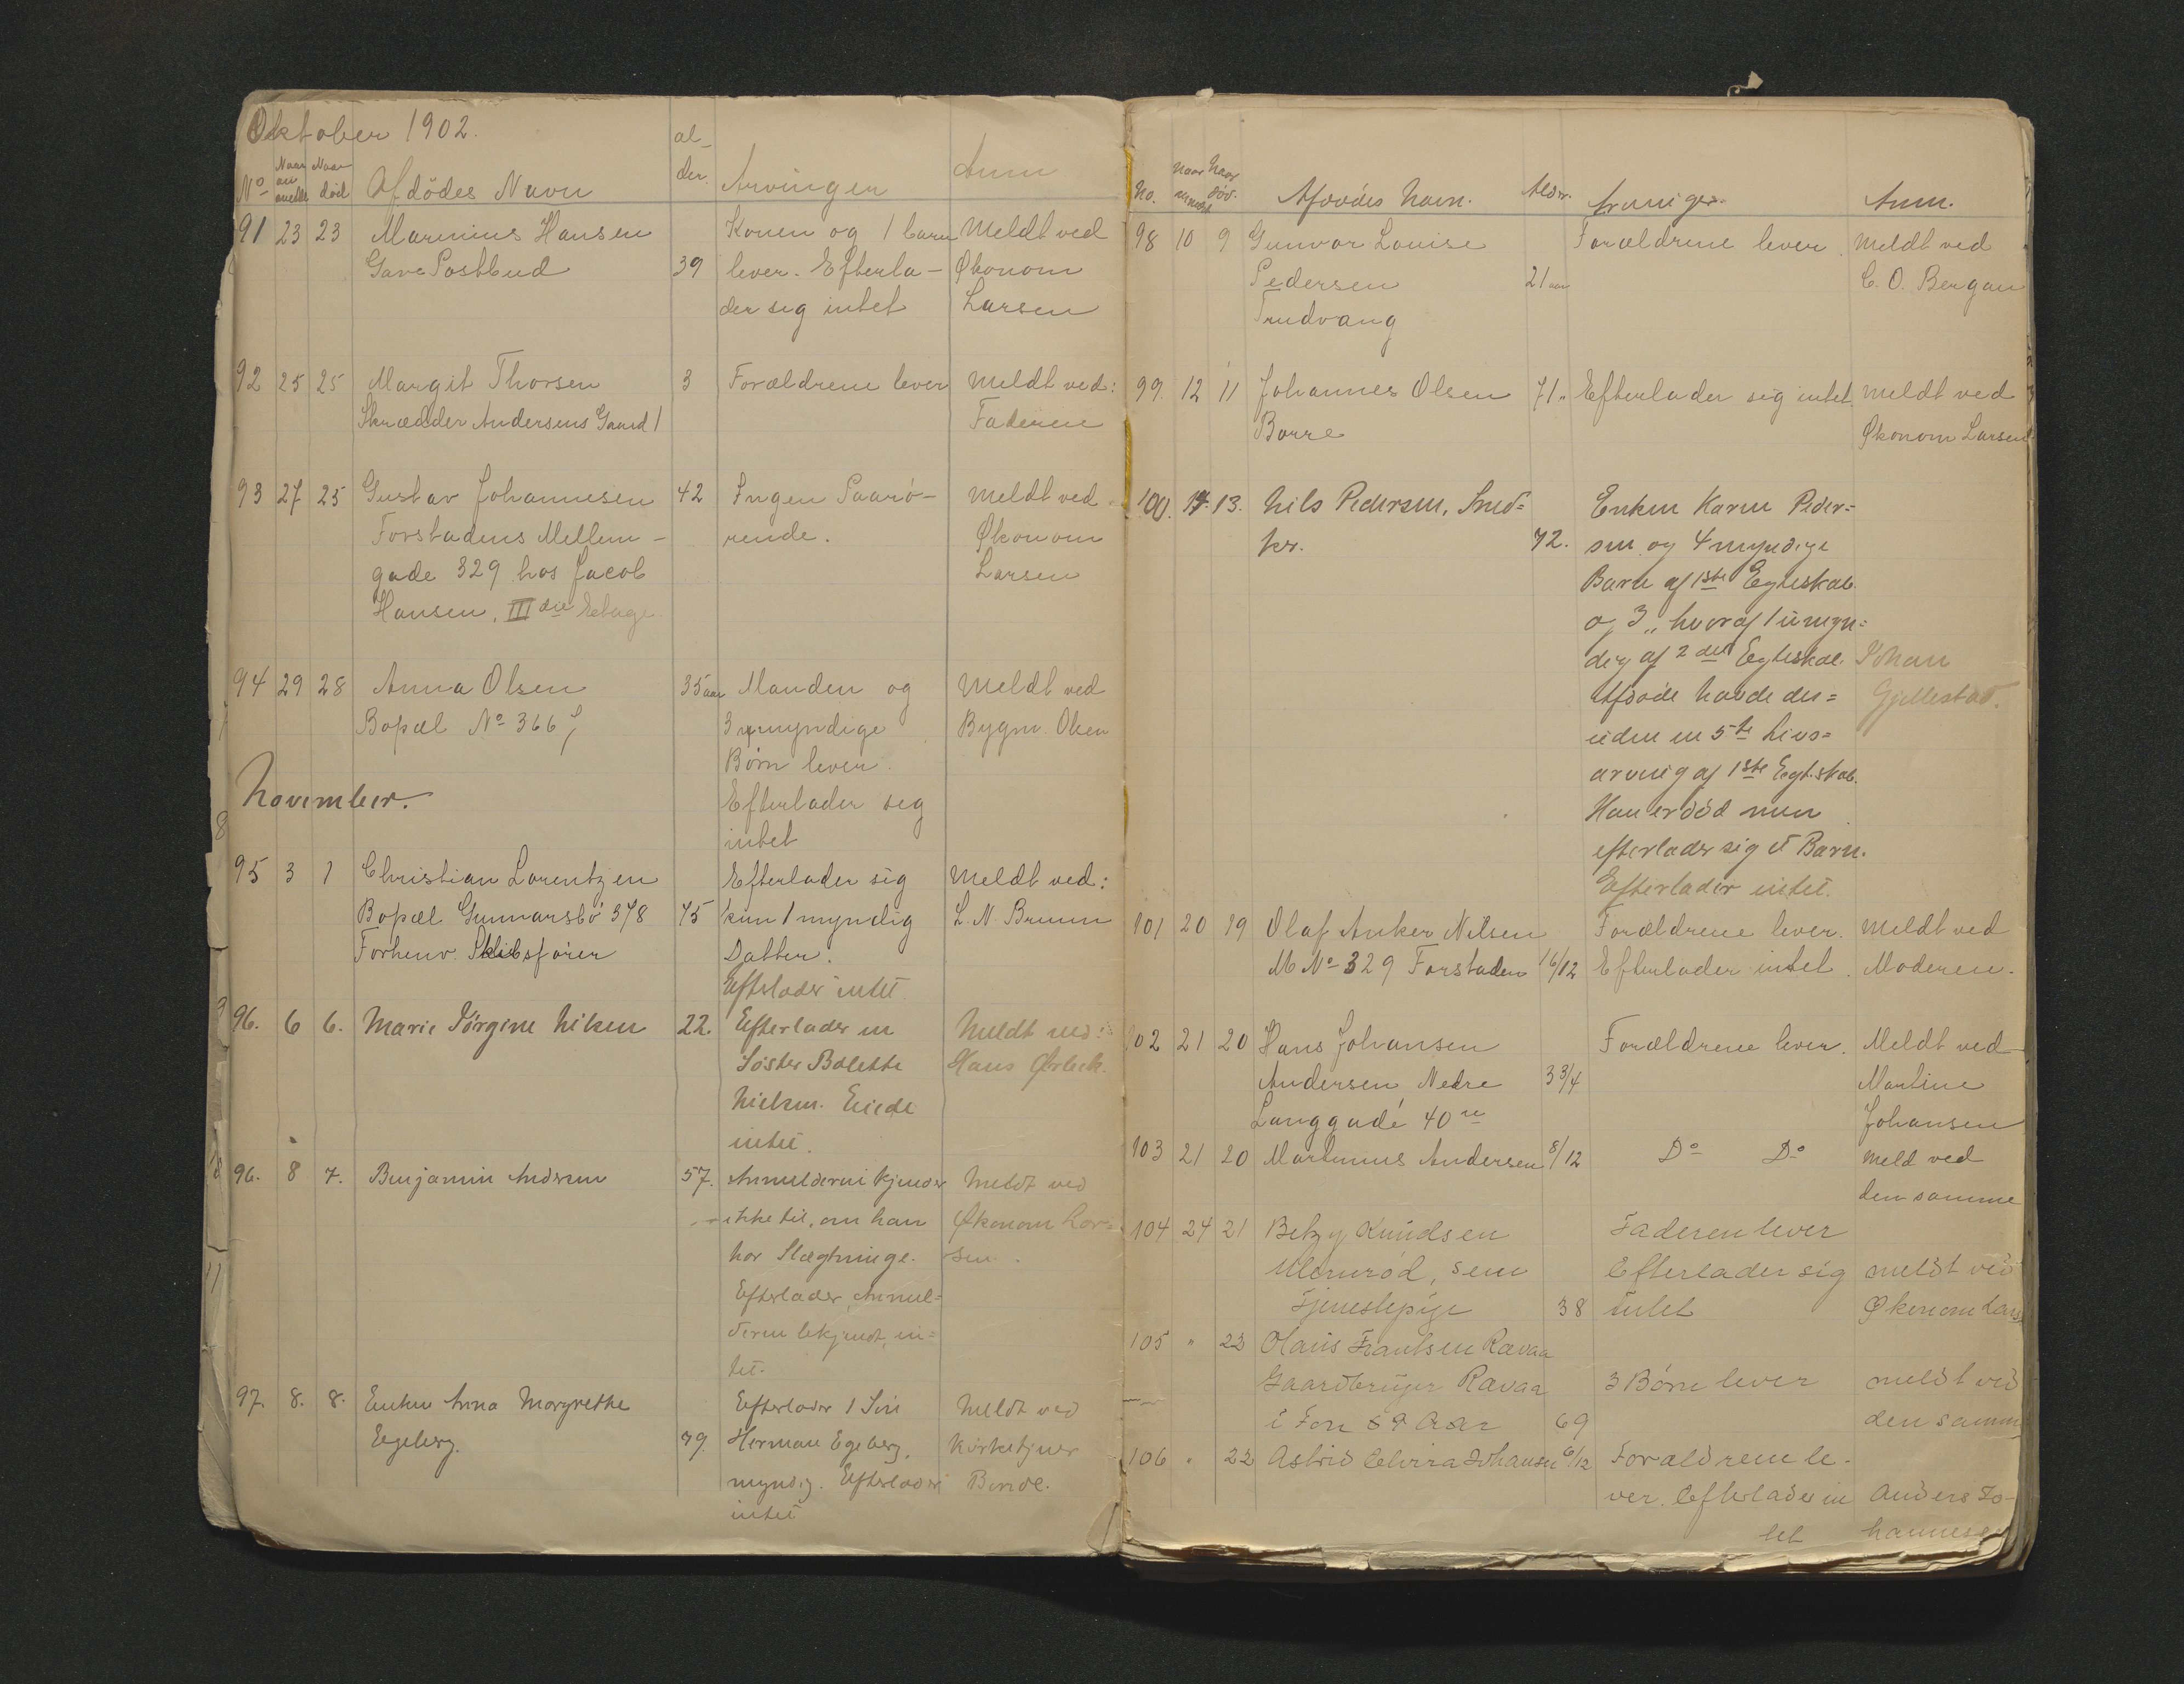 Oktober 1902.
No Naar anmeldt Naar død Afdödes Navn alder. Arvinger Anm
91 23 23 Marinius Hansen Konen og 1 barn Meldt ved
Postbud 39 lever. Efterla- Økonom
der sig intet Larsen
92 25 25 Margit Thorsen 3 Forældrene lever Meldt ved:
Skrædder Andersens Gaard Faderen
93 27 25 Gustav Johannesen 42 Ingen Paarö- Meldt ved
Forstadens Mellem- rende. Økonom
gade 329 hos Jacob Larsen
Hansen, III die Etage
94 29 28 Anna Olsen 35 aar Manden og Meldt ved
Bopæl No 366 3 umyndige Bygm. Olsen
Börn lever.
November.
Efterlader sig
intet
95 3 1 Christian Lorentzen Efterlader sig Meldt ved:
Bopæl Gunnarsbö 378 75 kun 1 myndig L. N. Bruun
Forhenv. Skibsfører Datter.
Efterlader intet
96. 6 6. Marie Jörgine Nilsen 22. Efterlader en Meldt ved:
Söster Bolette Hans
Nielsen. Eiede
intet.
96. 8 7. Benjamin Andersen 57. Anmelderen kjender Meldt ved
ikke til, om han Økonom Lar=
har Slægtninge. sen.
Efterlader, Anmel=
deren bekjendt, in=
tet.
97. 8. 8. Enken Anna Margrethe Efterlader 1 Sön Meldt ved
Egeberg. 79. Herman Egeberg, Kirketjener
myndig. Efterlader Bonde.
intet
No. Naar anmeldt Naar död. Afdödes Navn. Alder. Arvinger. Anm.
98 10 9 Gunvor Louise Forældrene lever. Meldt ved
Pedersen 21 aar C. O. Bergan
Trudvang
99. 12 11 Johannes Olsen 71 " Efterlader sig intet Meldt ved
Borre Økonom Larsen
100. 14. 13. Nils Pedersen, Sned=
ker. 72.
Enken Karen Peder=
sen og 4 myndige
Barn af 1ste Egteskab
og 3 " hvoraf 1 umyn=
dig af 2det Egteskab. Johan
Afdöde havde des= Gjellestad.
uden en 5te Livs=
arving af 1ste Egteskab.
Han er död men
efterlader sig et Barn.
Efterlader intet.
101 20 19 Olaf Anker Nilsen Forældrene lever. Meldt ved
M No 329 Forstaden 16/12 Efterlader intet. Moderen.
102 21 20 Hans Johansen Forældrene lever. Meldt ved
Andersen, Nedre 3 3/4 Martine
Langgade 40 Johansen
103 21 20 Martinius Andersen 8/12 Do Do Meld ved
den samme
104 24 21 Betzy Knudsen Faderen lever
Ulernröd, sem Efterlader sig meldt ved
Tjenestepige 38 intet Økonom Lars
105 " 23 Olaus Frantsen Ravaa
Gaardbruger Ravaa 3 Börn lever meldt ved
69 den samme
106 " 22 Astrid Elvira Johansen 6/12 Forældrene le-
ver. Efterlader in Anders Jo-
tet hannesen